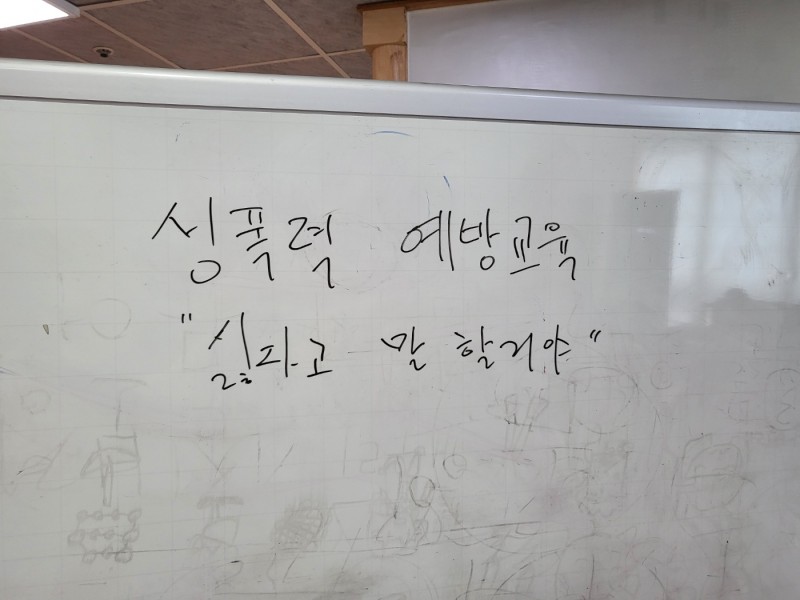 성폭력 예방교육
"싫다고 말 할거야"